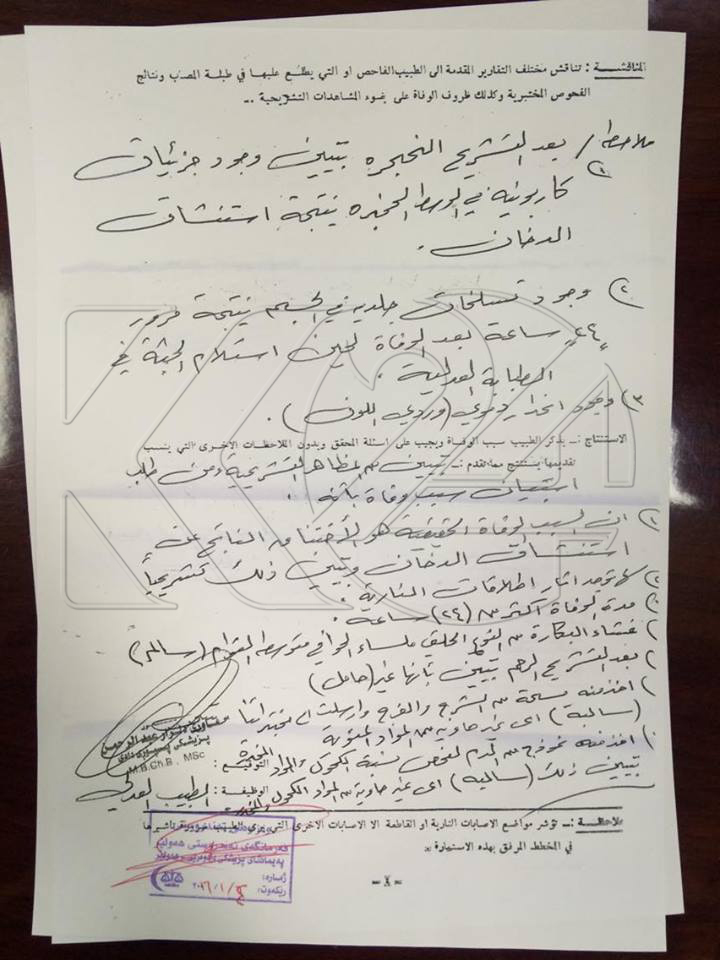 المناقشـــة : تناقش مختلف التقارير المقدمة الى الطبيب الفاحص او التي يطلع عليها في طبلة المصاب ونتائج
الفحوص المختبرية وكذلك ظروف الوفاة على ضوء المشاهدات التشريحية ..
ملاحظة / بعد التشريح الحنجره يتبين وجود جزئيات
١) كاربونية في الوسط الحنجره نتيجة استنشاق
الدخان .
٢) وجود تسلخات جلديه في الجسم نتيجة مرور
٢٤ ساعة بعد الوفاة لحين استلام الجثة في
الطبابة العدلية .
٣) وجود انحدار دموي (وردي اللون) .
الاستنتاج :ـ يذكر الطبيب سبب الوفاة ويجيب على اسئلة المحقق ويدون الملاحظات الاخرى التي ينسب
تقديمها يستنتج مما تقدم :ـ يتبين من المظاهر التشريحية ومن طلب
استبيان سبب وفاة بأنه :
١) ان السبب الوفاة الحقيقية هو الأختناق الناتج عن
استنشاق الدخان وتبين ذلك تشريحياً
٢) لا توجد اثار اطلاقات النارية .
مدة الوفاة اكثر من (٢٤) ساعة .
غشاء البكارة من النوع الحلقي ملساء الحوافي متوسط القوام (سالم)
بعد التشريح الرحم تبين بأنها غير (حامل)
اخذ منه مسحة من الشرج والفرج وارسلت الى مختبراتنا
(سالبة) اي غير حاوية من المواد المنوية
اخذ منه نموذج من الدم لفحص نسبة الكحول والمواد المخدرة
التوقيع :
تبين ذلك (سالبة) اي غير حاوية من المواد الكحول والمخدر
الوظيفة : الطبيب العدلي
M.B.Ch.B , MSc
ملاحظـــة :ـ تؤشر مواضع الاصابات النارية او القاطعة الا الاصابات الاخرى التي يرى الطبيب ضرورة تأشيرها
في المخطط المرفق بهذه الاستمارة .
ژمارە:
ڕێکەوت:
ـ ٨ ـ
K24